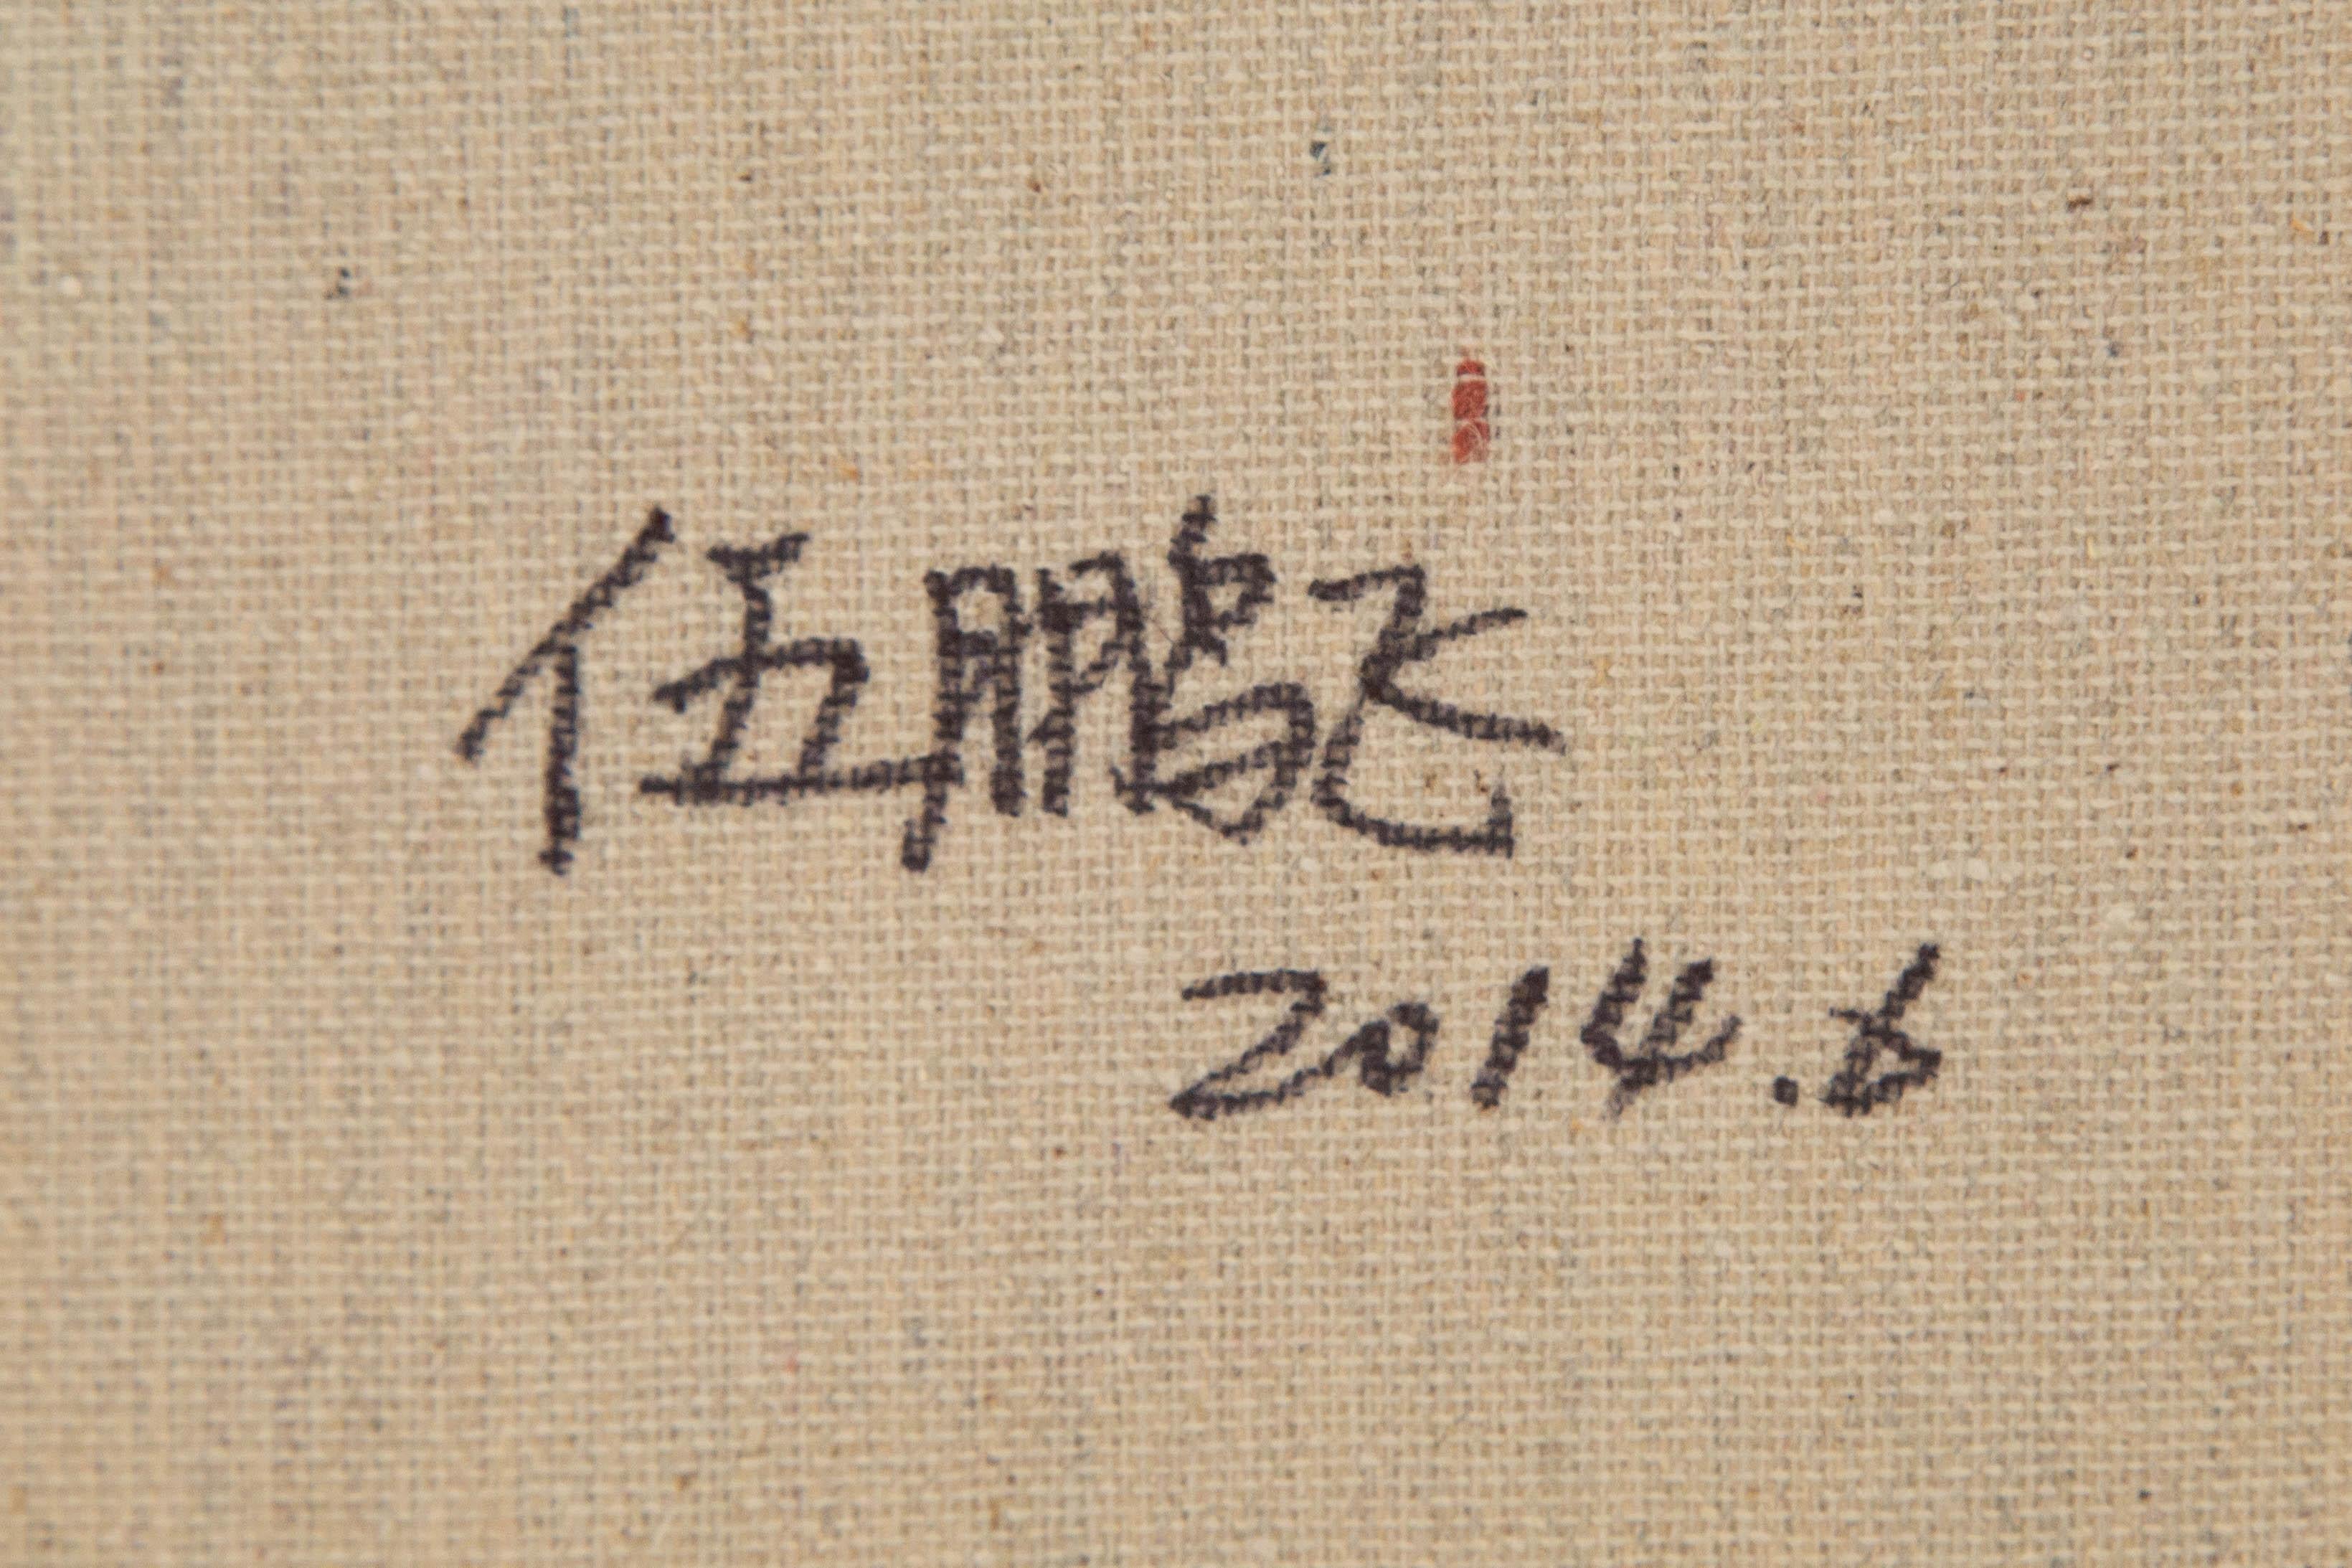 伍鹏飞
2014.6